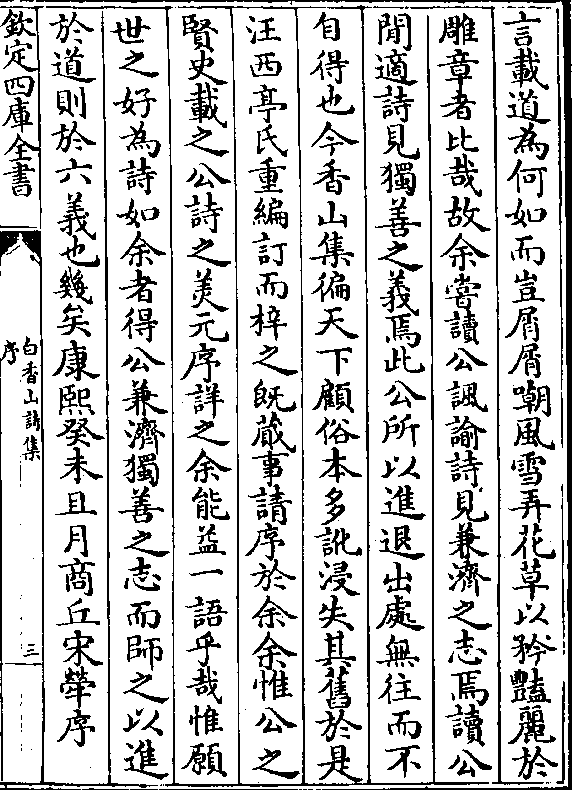 言載道為何如而豈屑屑嘲風雪弄花草以矜豔麗於
雕章者比哉故余嘗讀公諷諭詩見兼濟之志焉讀公
閒適詩見獨善之義焉此公所以進退出處無往而不
自得也今香山集徧天下顧俗本多訛浸失其舊於是
汪西亭氏重編訂而梓之既蕆事請序於余余惟公之
賢史載之公詩之美元序詳之余能益一語乎哉惟願
世之好為詩如余者得公兼濟獨善之志而師之以進
於道則於六義也幾矣康熙癸未且月商丘宋犖序
欽定四庫全書
白香山詩集
序
三